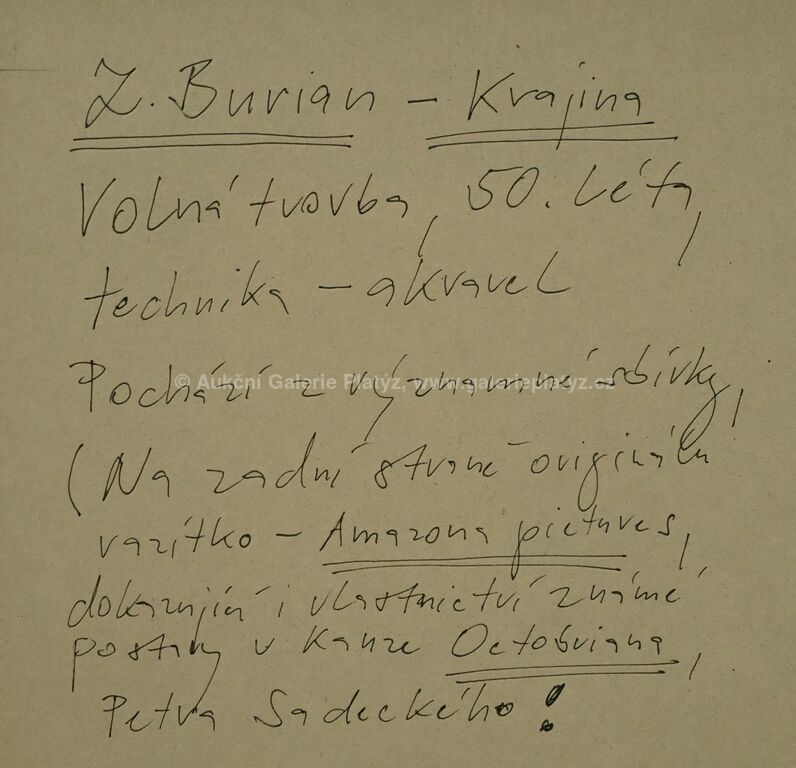 Z. Burian – Krajina
Volná tvorba, 50. léta,
technika – akvarel
Pochází z významné sbírky,
© Aukční Galerie Platýz, www.galerieplatyz.cz
(Na zadní straně originálu
razítko – Amazona pictures,
dokazující i vlastnictví známé
postavy v kauze Octobriana,
Petra Sadeckého!